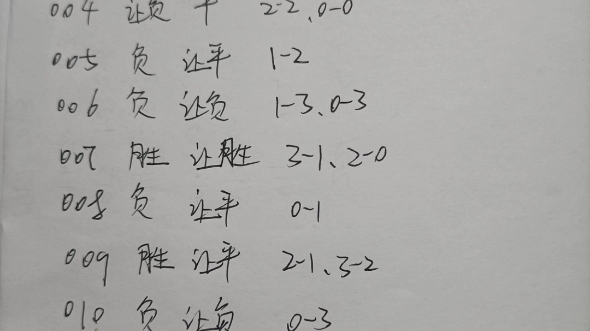 004 让负 平 2-2、0-0
005 负 让平 1-2
006 负 让负 1-3、0-3
007 胜 让胜 3-1、2-0
008 负 让平 0-1
009 胜 让平 2-1、3-2
010 负 让负 0-3